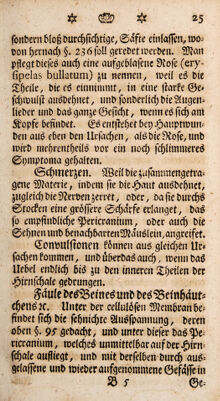 25
sondern bloß durchsichtige, Säfte einlassen, wo-
von hernach §. 236 soll geredet werden. Man
pflegt dieses auch eine aufgeblasene Rose (ery-
sipelas bullatum) zu nennen, weil es die
Theile, die es einnimmt, in eine starke Ge-
schwulst ausdehnet, und sonderlich die Augen-
lieder und das ganze Gesicht, wenn es sich am
Kopfe befindt. Es entstehet bey Hauptwun-
den aus eben den Ursachen, als die Rose, und
wird mehrentheils vor ein noch schlimmeres
Symptoma gehalten.
Schmerzen. Weil die zusammengetra-
gene Materie, indem sie die Haut ausdehnet,
zugleich die Nerven zerret, oder, da sie durchs
Stocken eine grössere Schärfe erlanget, das
so empfindliche Pericranium, oder auch die
Sehnen und benachbarten Mäuslein, angreifet.
Convulsionen können aus gleichen Ur-
sachen kommen, und überdas auch, wenn das
Uebel endlich bis zu den inneren Theilen der
Hirnschale gedrungen.
Fäule des Beines und des Beinhäut-
chens ꝛc. Unter der cellulösen Membran be-
findet sich die sehnichte Ausspannung, deren
oben §. 95 gedacht, und unter dieser das Pe-
ricranium, welches unmittelbar auf der Hirn-
schale aufliegt, und mit derselben durch aus-
gelassene und wieder aufgenommene Gefässe in
B 5 Ge-